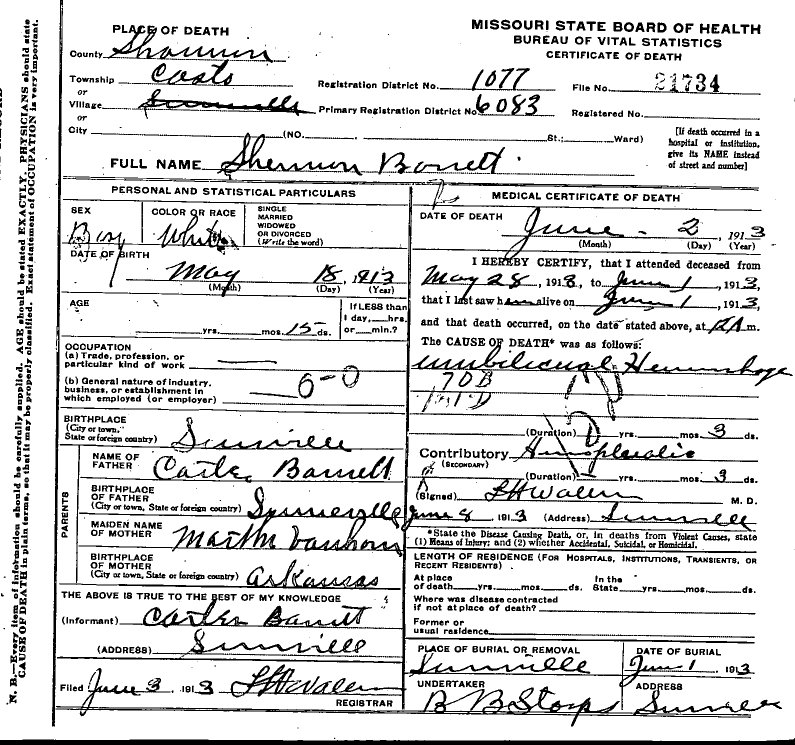 MISSOURI STATE BOARD OF HEALTH
BUREAU OF VITAL STATISTICS
CERTIFICATE OF DEATH
PLACE OF DEATH
County Shannon
Township
or
Village
or
City (NO. St.; Ward)
Registration District No. 1077
File No. 21734
Primary Registration District No. 6083
Registered No.
[If death occurred in a
hospital or institution,
give its NAME instead
of street and number]
FULL NAME Shermon Barrett
PERSONAL AND STATISTICAL PARTICULARS
SEX
Boy
COLOR OR RACE
White
SINGLE
MARRIED
WIDOWED
OR DIVORCED
(Write the word)
DATE OF BIRTH
May 18, 1913
(Month) (Day) (Year)
AGE
yrs. mos. 15 ds.
If LESS than
1 day, hrs.
or min.?
OCCUPATION
(a) Trade, profession, or
particular kind of work
(b) General nature of industry,
business, or establishment in
which employed (or employer)
0-0
BIRTHPLACE
(City or town,
State or foreign country)
PARENTS
NAME OF
FATHER Carter Barrett
BIRTHPLACE
OF FATHER
(City or town, State or foreign country)
MAIDEN NAME
OF MOTHER Martha Vanhorn
BIRTHPLACE
OF MOTHER
(City or town, State or foreign country) Arkansas
THE ABOVE IS TRUE TO THE BEST OF MY KNOWLEDGE
(Informant) Carter Barrett
(ADDRESS)
Filed June 3, 1913
REGISTRAR
MEDICAL CERTIFICATE OF DEATH
DATE OF DEATH
June - 2, 1913
(Month) (Day) (Year)
I HEREBY CERTIFY, that I attended deceased from
May 28, 1913, to June 1, 1913,
that I last saw him alive on June 1, 1913,
and that death occurred, on the date stated above, at m.
The CAUSE OF DEATH* was as follows:
umbilicual Hemmrhage
70B
(Duration) yrs. mos. 3 ds.
Contributory
(SECONDARY)
(Duration) yrs. mos. 3 ds.
(Signed) M. D.
June 8, 1913 (Address)
*State the Disease Causing Death, or, in deaths from Violent Causes, state
(1) Means of Injury; and (2) whether Accidental, Suicidal, or Homicidal.
LENGTH OF RESIDENCE (FOR HOSPITALS, INSTITUTIONS, TRANSIENTS, OR
RECENT RESIDENTS)
At place
of death yrs. mos. ds.
In the
State yrs. mos. ds.
Where was disease contracted
if not at place of death?
Former or
usual residence
PLACE OF BURIAL OR REMOVAL
DATE OF BURIAL
June 1, 1913
UNDERTAKER
ADDRESS
N. B.—Every item of information should be carefully supplied. AGE should be stated EXACTLY. PHYSICIANS should state
CAUSE OF DEATH in plain terms, so that it may be properly classified. Exact statement of OCCUPATION is very important.